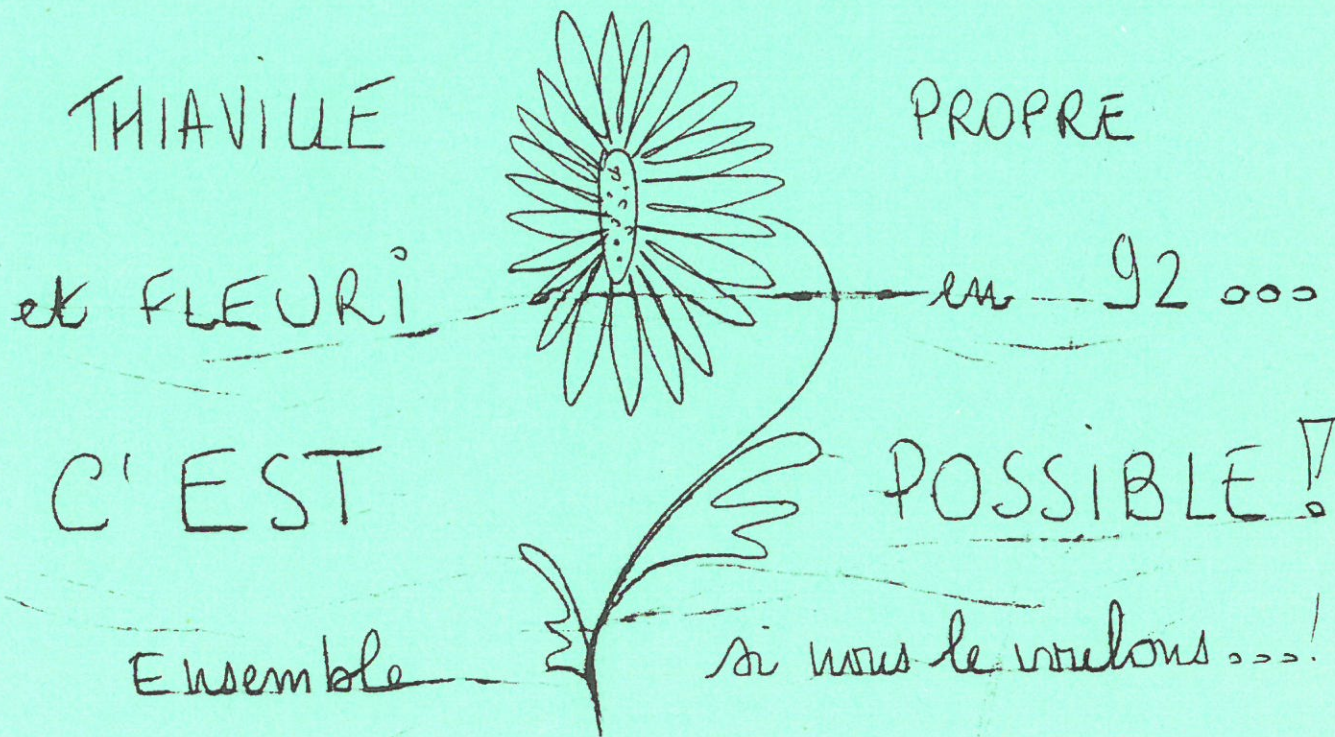 THIAVILLE PROPRE
et FLEURi en 92 ...
C'EST POSSiBLE !
Ensemble si nous le voulons ...!